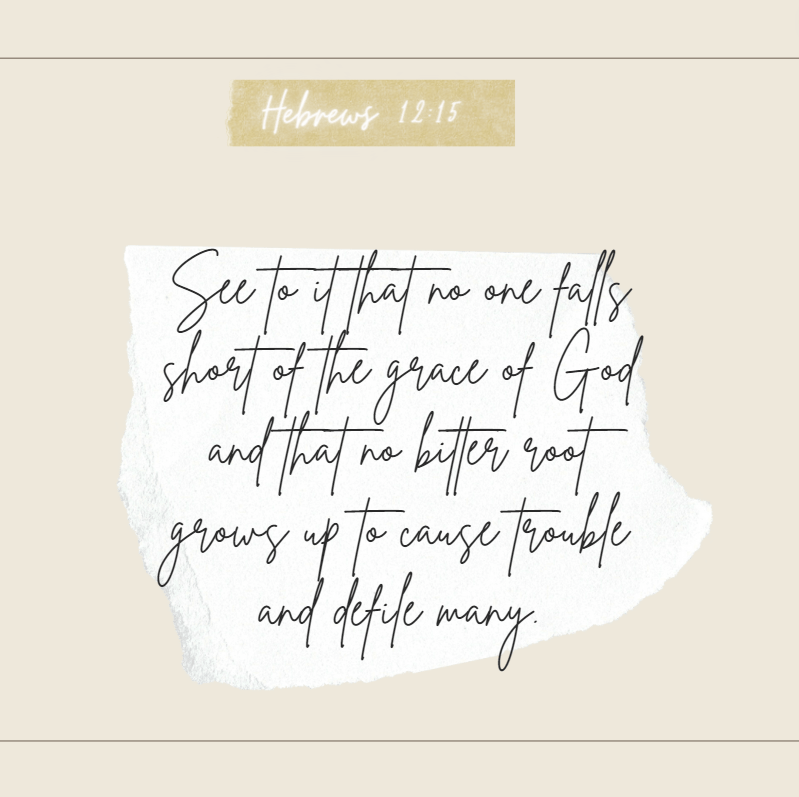 Hebrews 12:15
See to it that no one falls
short of the grace of God
and that no bitter root
grows up to cause trouble
and defile many.